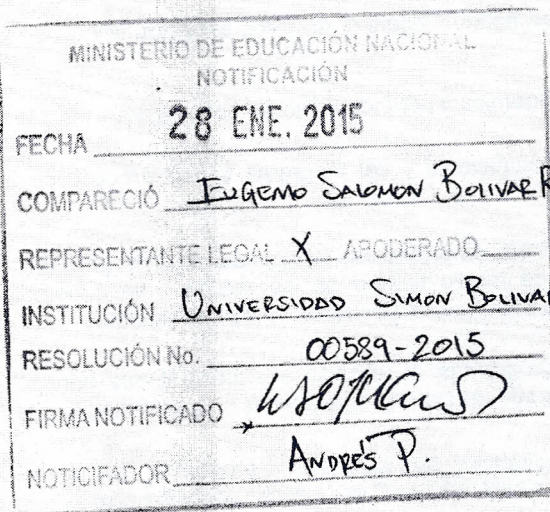 MINISTERIO DE EDUCACIÓN NACIONAL
NOTIFICACIÓN
FECHA 28 ENE. 2015
COMPARECIÓ EUGENIO SALOMON BOLIVAR R
REPRESENTANTE LEGAL X APODERADO
INSTITUCIÓN UNIVERSIDAD SIMON BOLIVAR
RESOLUCIÓN No. 00589-2015
FIRMA NOTIFICADO
NOTICIFADOR ANDRÉS P.